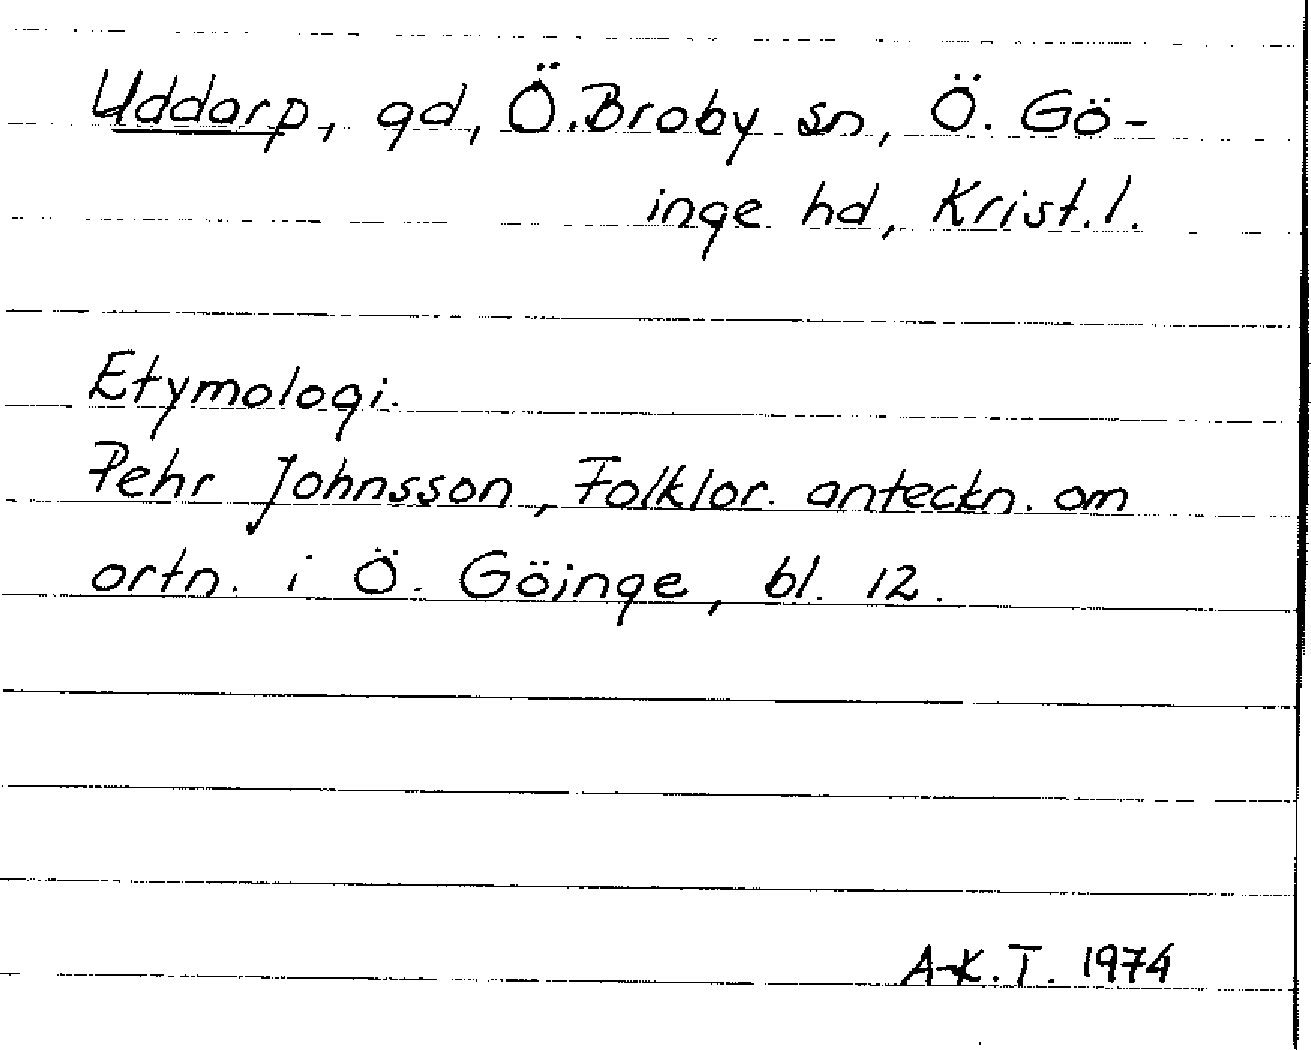 Uddarp, gd, Ö.Broby sn, Ö. Gö-
inge hd, Krist.l.
Etymologi.
Pehr Johnsson, Folklor. anteckn. om
ortn. i Ö. Göinge, bl. 12.
A-K.T. 1974